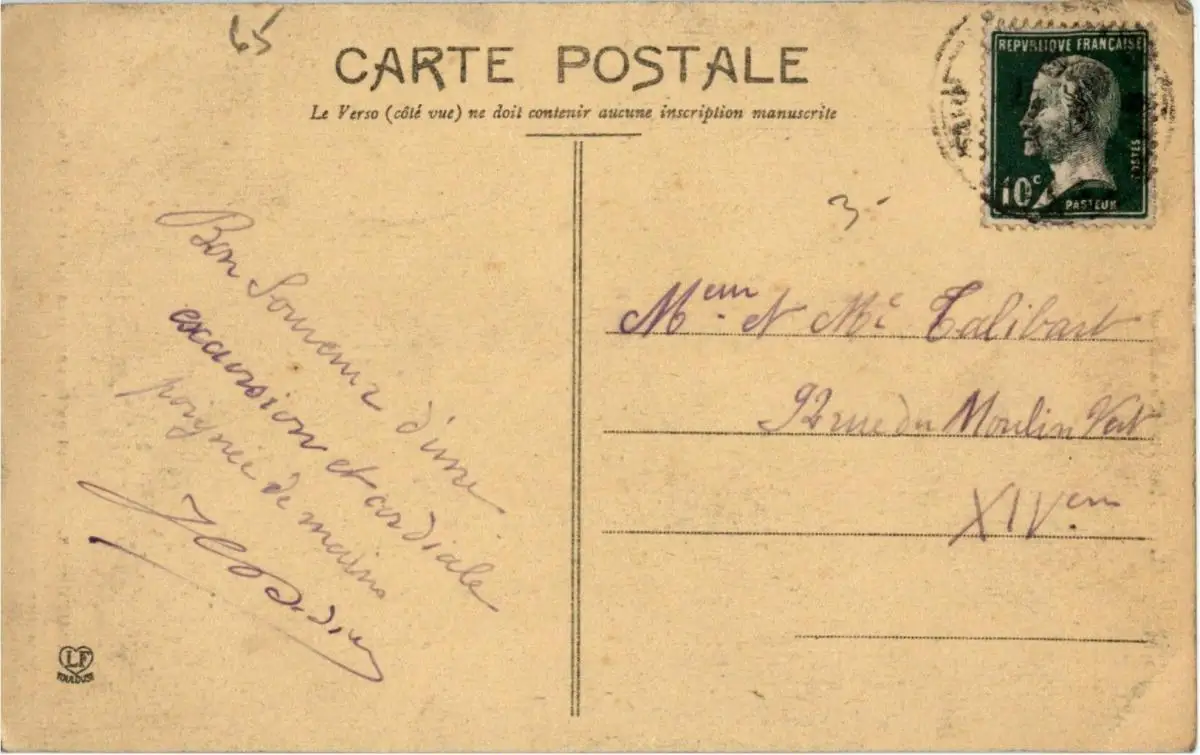 65
CARTE POSTALE
Le Verso (côté vue) ne doit contenir aucune inscription manuscrite
REPVBLIQVE FRANÇAISE
POSTES
10c
PASTEUR
3-
Bon Souvenir d'une
excursion et cordiale
poignée de mains
Mem et Me Talibart
92 rue du Moulin Vert
XIVem
LF
TOULOUSE